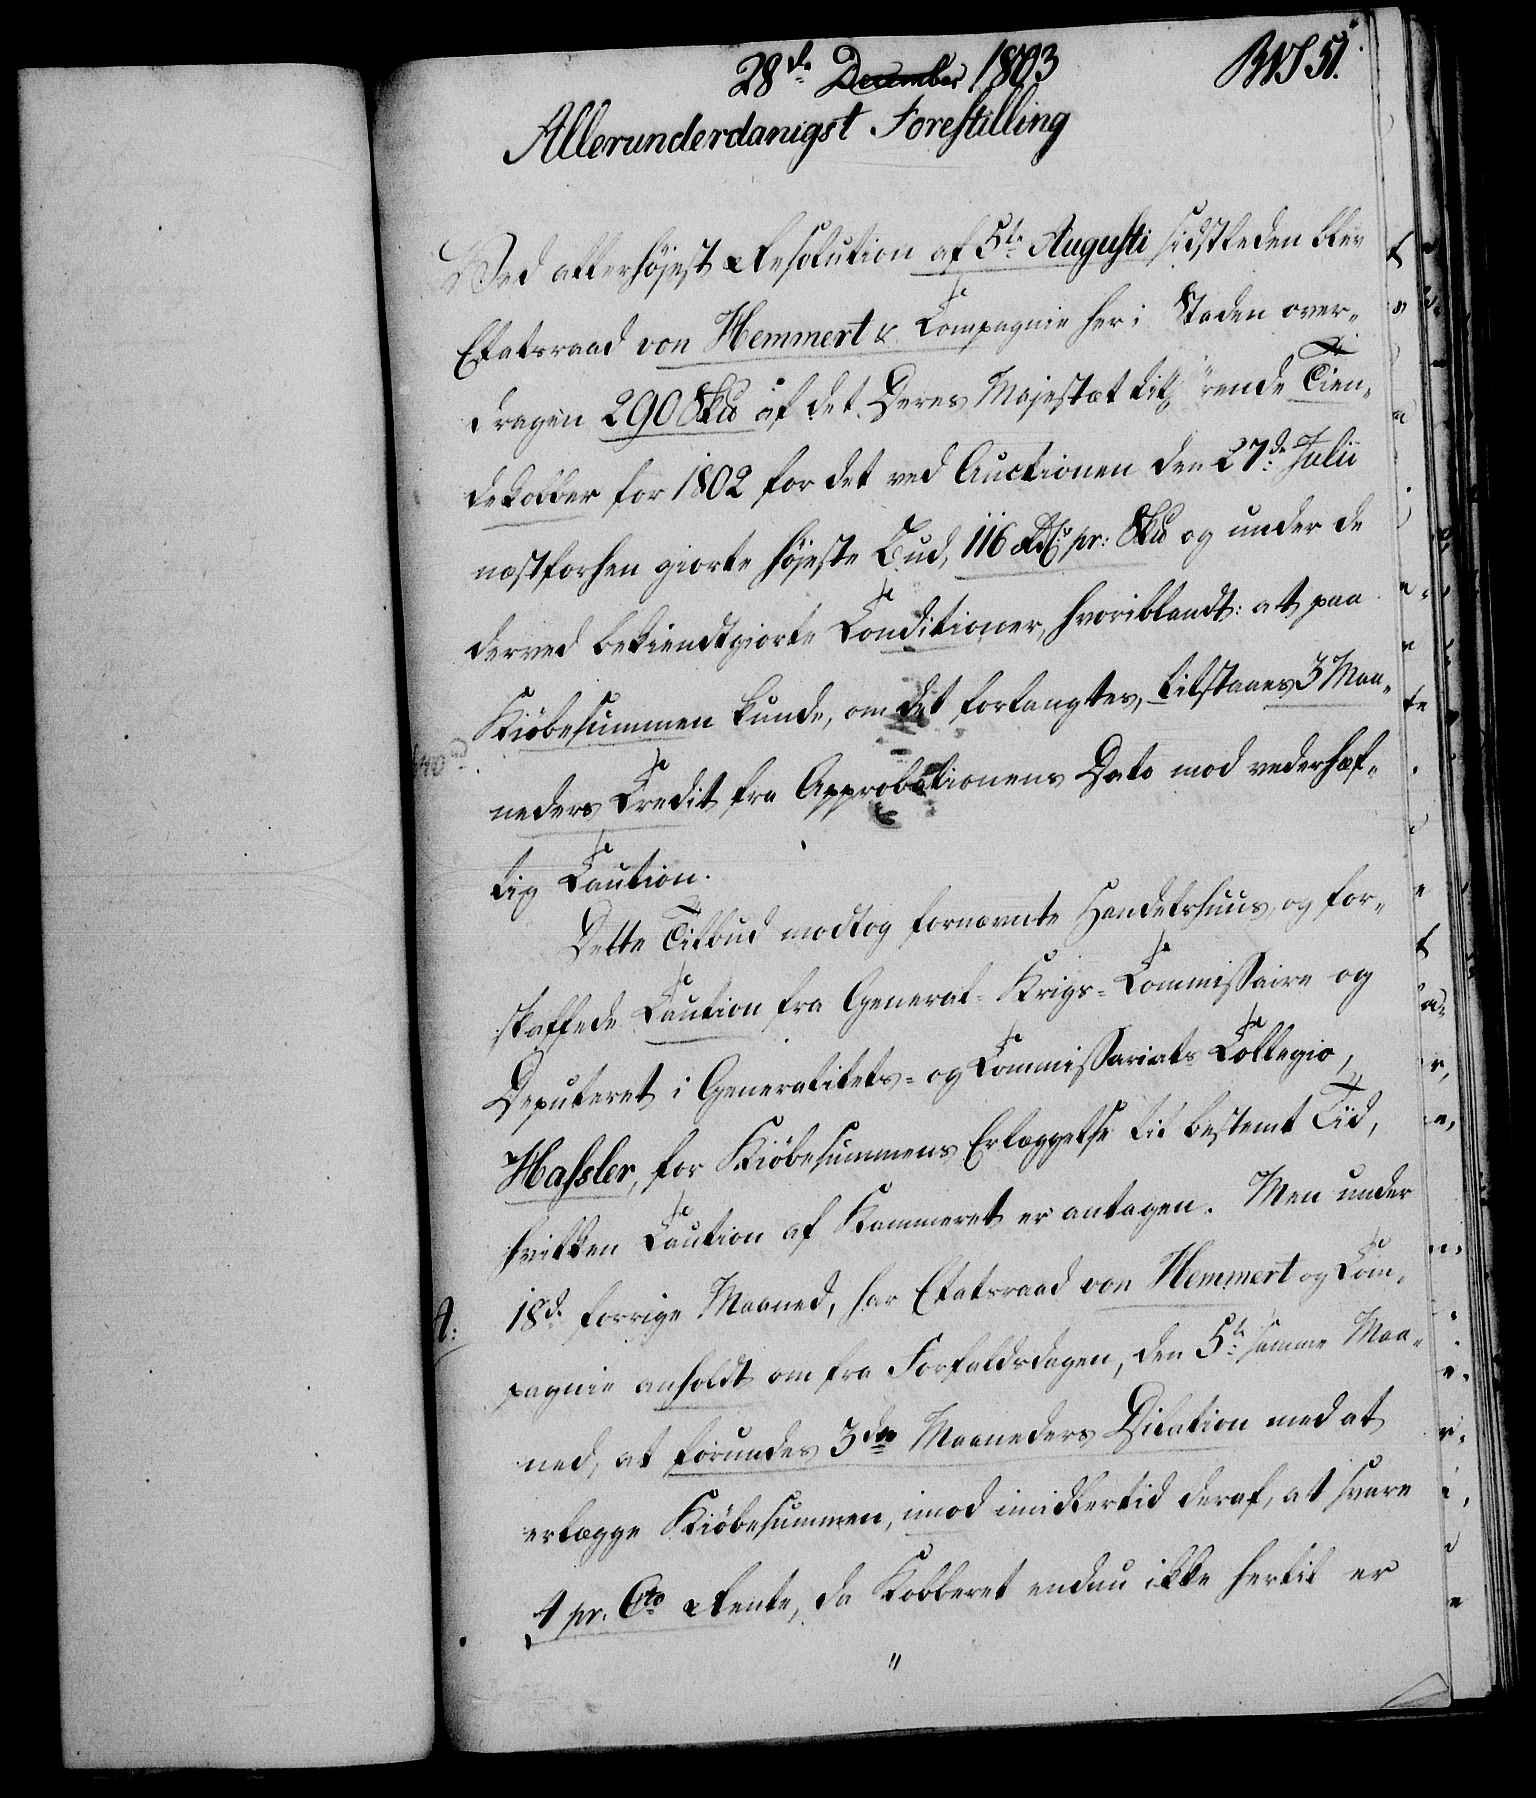 28de December 1803
Allerunderdanigst Forestilling
Ved allerhøjest Resolution af 5te Augusti sidstleden blev
Etatsraad von Hemmert & Compagnie her i Staden over-
dragen 290 Sk℔ af det Deres Majestæt tilhørende Tien-
dekobber for 1802 for det ved Auctionen den 27de Julii
næstforhen giorte høieste Bud, 116 Rdr pr: Sk℔ og under de
derved bekiendtgiorte Conditioner, hvoriblandt: at paa
Kiöbesummen kunde, om det forlangtes, tilstaaes 3 Maa-
neders Credit fra Approbationens Dato mod vederhæf-
tig Caution.
Dette Tilbud modtog fornævnte Handelshuus, og for-
skaffede Caution fra General-Krigs-Commissaire og
Deputeret i Generalitets- og Commissariats Collegio,
Hassler, for Kiöbesummens Erlæggelse til bestemt Tiid,
hvilken Caution af Kammeret er antagen. Men under
A: 18de forrige Maaned, har Etatsraad von Hemmert og Com-
pagnie anholdt om fra Forfaldsdagen, den 5te samme Maa-
ned, at forundes 3de Maaneders Dilation med at
erlægge Kiöbesummen, imod imidlertid deraf, at svare
4 pr. Cto Rente, da Kobberet endnu ikke hertil er
"